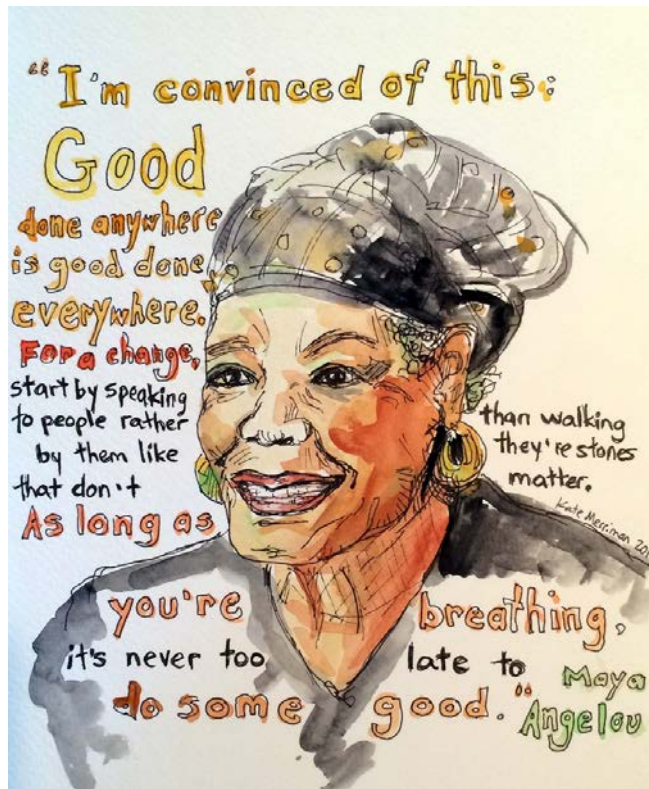 “I'm convinced of this:
Good
done anywhere
is good done
everywhere.
For a change,
start by speaking
to people rather than walking
by them like they're stones
that don't matter.
As long as
you're breathing,
it's never too late to
do some good.”
Maya
Angelou
Kate Merriman